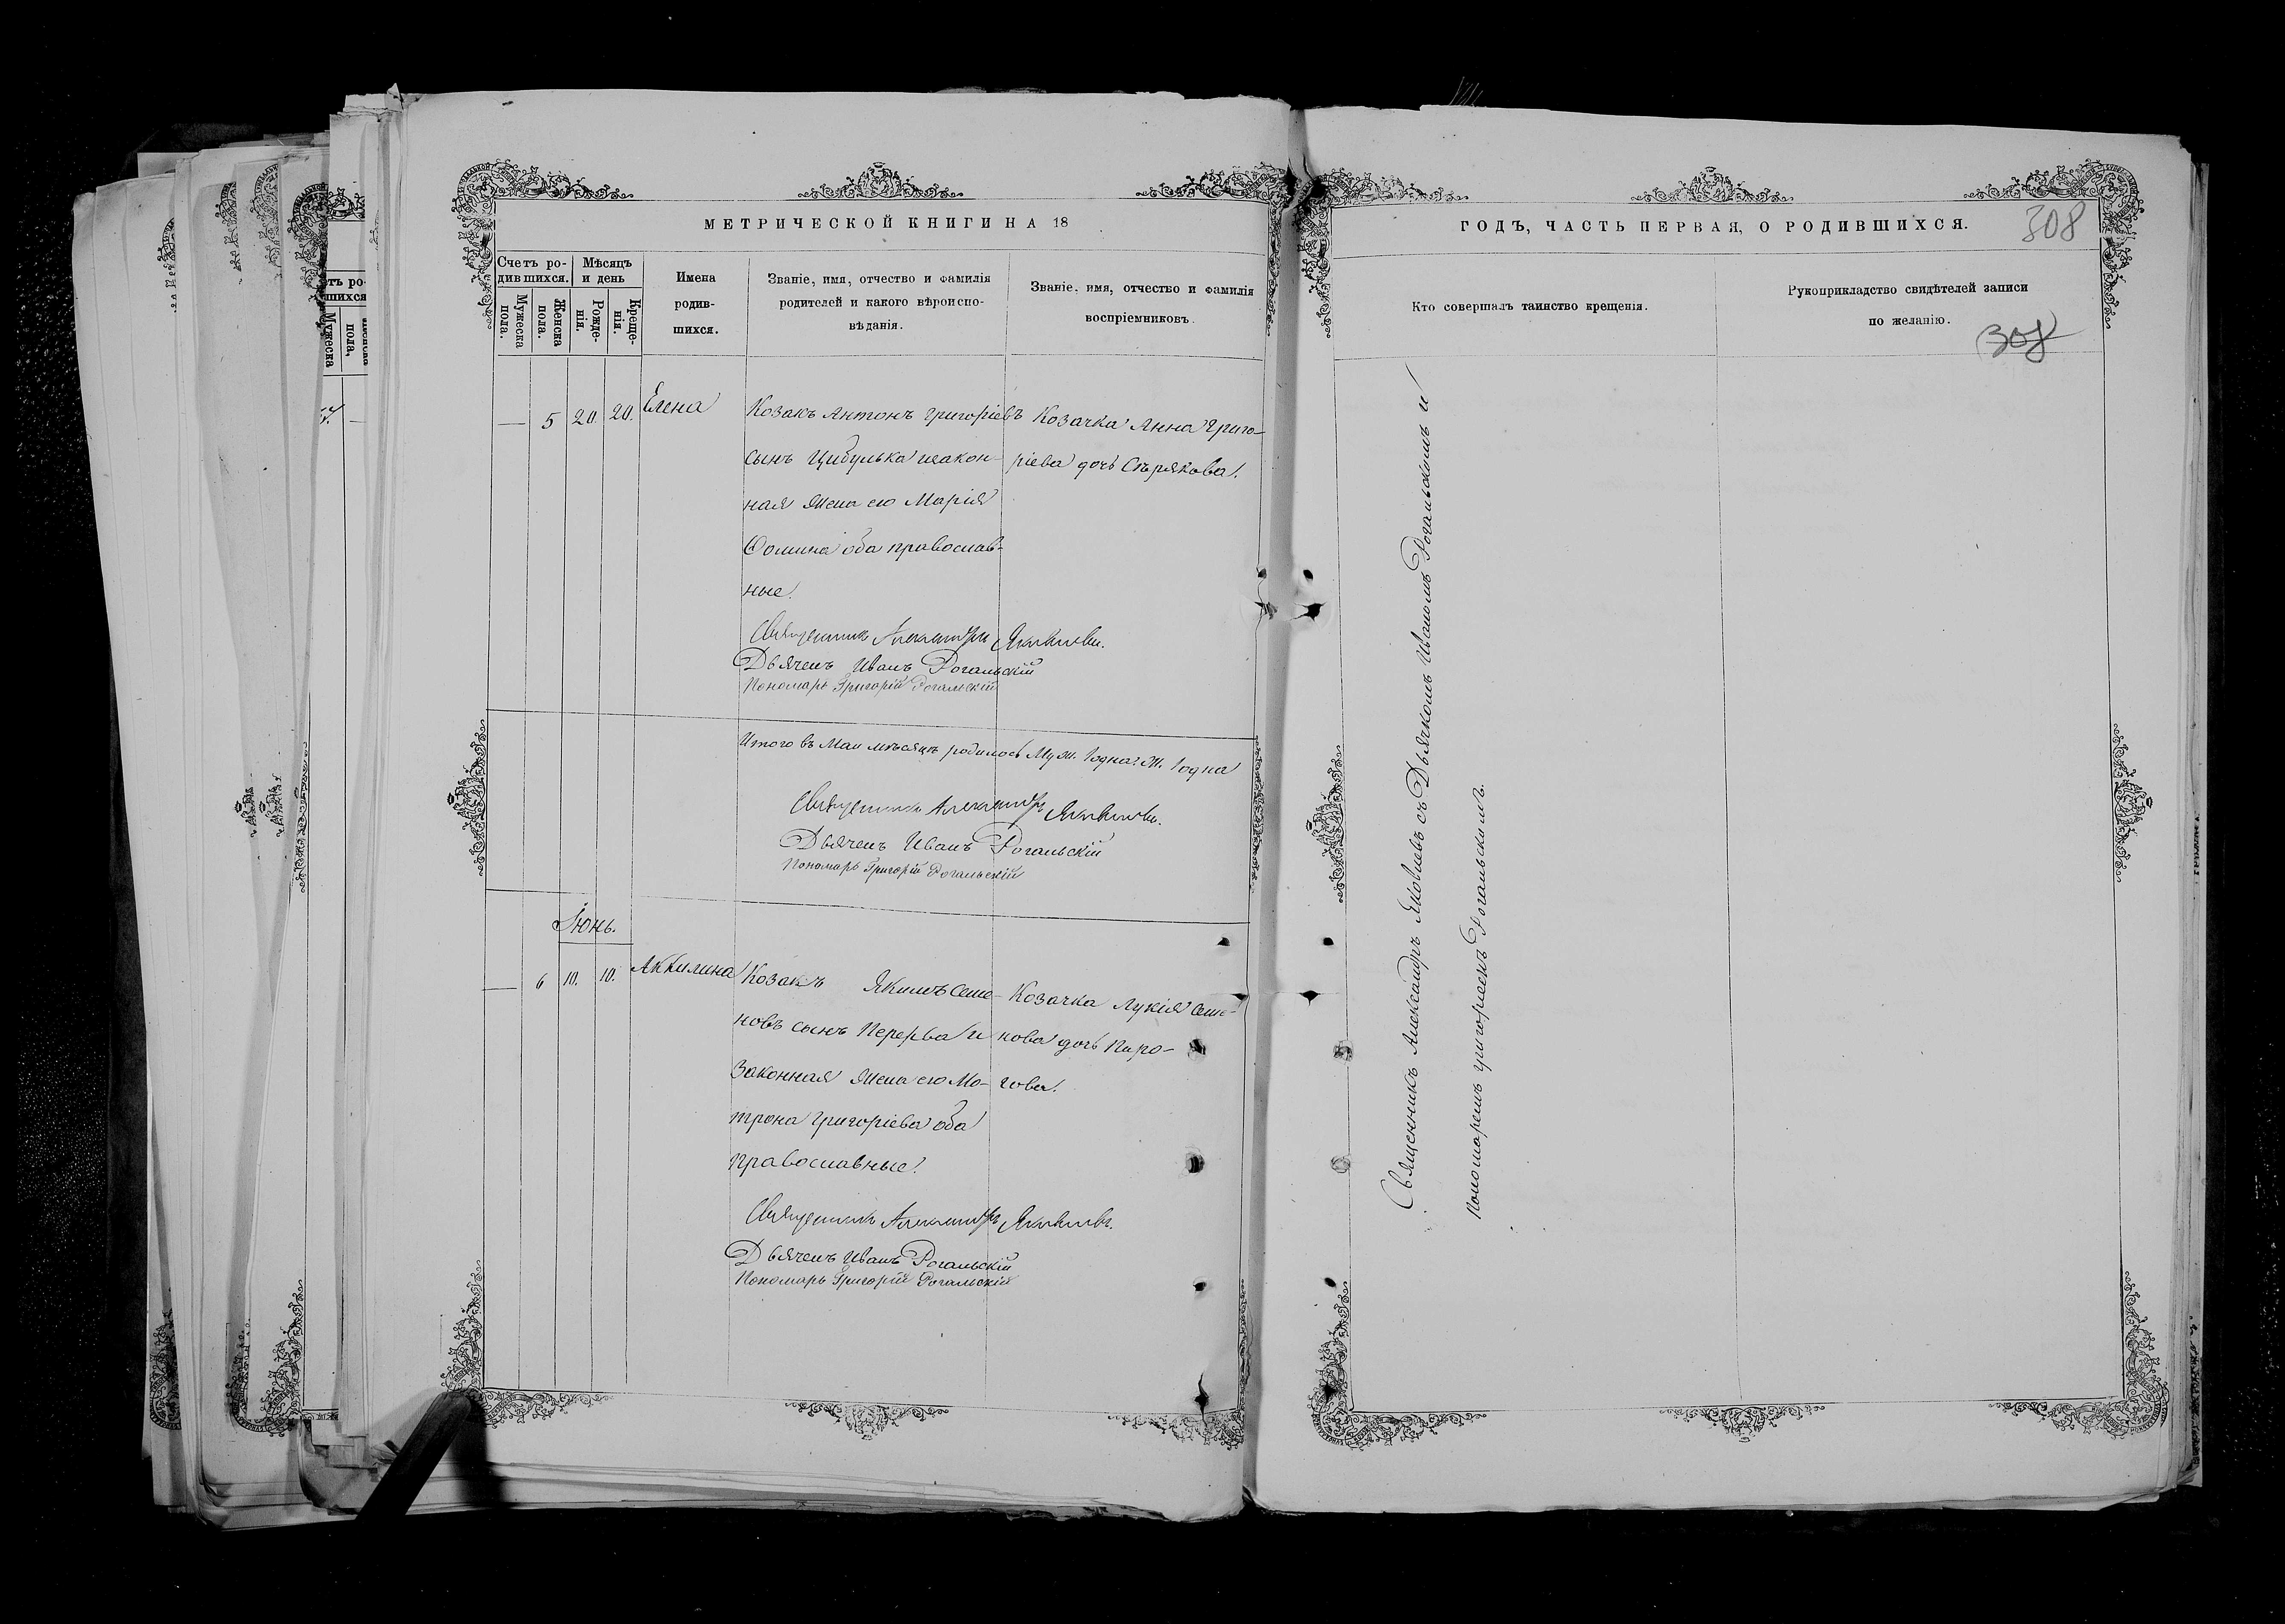 МЕТРИЧЕСКОЙ КНИГИ НА 18
Счетъ родившихся.
Мѣсяцъ и день
Мужеска пола.
Женска пола.
Рожденія.
Крещенія.
Имена
родив-
шихся.
Званіе, имя, отчество и фамилія
родителей и какого вѣроиспо-
вѣданія.
Званіе, имя, отчество и фамилія
воспріемниковъ.
— 5 20. 20. Елена
Козакъ Антонъ Григоріевъ
сынъ Цибулька и закон-
ная жена его Марія
Ѳомина оба православ-
ные.
Козачка Анна Григо-
ріева дочь Сѣрякова.
Священникъ Александръ Яковлевъ.
Дьячекъ Иванъ Рогальскій
Пономарь Григорій Рогальскій
Итого въ Маи мѣсяцѣ родилось Муж. 1 одна. Ж. 1 одна
Священникъ Александръ Яковлевъ.
Дьячекъ Иванъ Рогальскій
Пономарь Григорій Рогальскій
Іюнь.
— 6 10. 10. Аккилина
Козакъ Якимъ Семе-
новъ сынъ Перерва и
законная жена его Мо-
трона Григоріева оба
православные.
Козачка Лукія Семе-
нова дочь Пиро-
гова.
Священникъ Александръ Яковлевъ.
Дьячекъ Иванъ Рогальскій
Пономарь Григорій Рогальскій
ГОДЪ, ЧАСТЬ ПЕРВАЯ, О РОДИВШИХСЯ.
308
Кто совершалъ таинство крещенія.
Рукоприкладство свидѣтелей записи
по желанію.
308
Священникъ Александръ Яковлевъ съ Дьячкомъ Иваномъ Рогальскимъ и
Пономаремъ Григоріемъ Рогальскимъ.